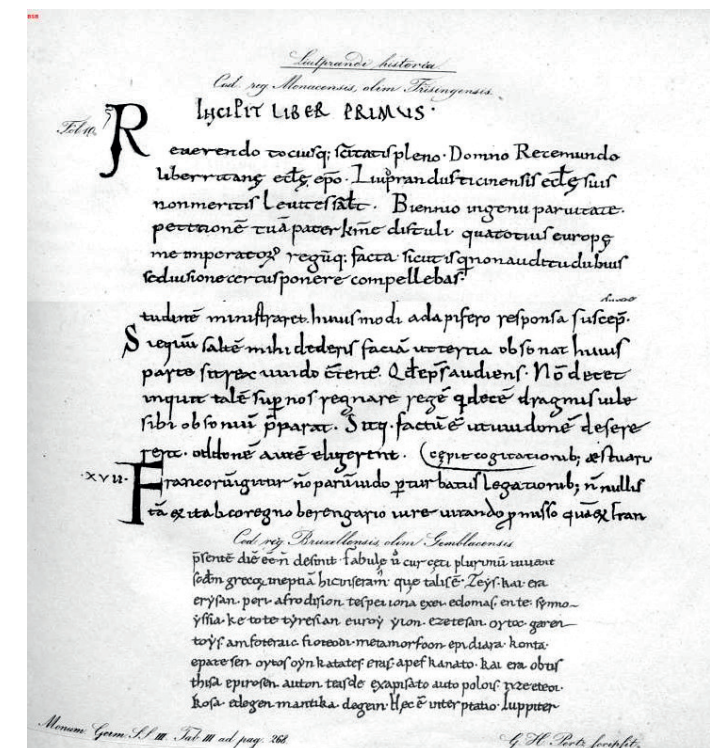 Liutprandi historia
Cod. reg. Monacensis, olim Frisingensis.
INCIPIT LIBER PRIMUS·
Fol 10.
R
euerendo tociusq; scitatis pleno· Domno Recemundo
liberritanę eclę epo· Liuprandus ticinensis eclę suis
non meritis leuites salt· Biennio ingenii paruitate·
petitionē tuā pater kme distuli qua totius europę
me imperatoꝝ regūq; facta sicut is q non auditu dubius
sed uisione certus ponere compellebas·
tudinē ministraret· huius modi ad apifero responsa suscep·
S
altē mihi dederis faciā ut tertia obsonat huius
parte sit rex uuido Qd eps audiens· Nō decet
inquit talē sup nos regnare regē q decē dragmis uile
sibi obsoniū pparat· Sitq· factū ē ut uuidonē desere
rent· oddonē autē eligerent· (cępit cogitationib; æstuari
·XVII·
F
rancorū igitur nō parū uuido pturbatus legationib; nullis
tā ex italico regno berengario iure iurando pmisso quā ex fran
Cod. reg. Bruxellensis, olim Gemblacensis
psentē diē desinit· fabulę cur ceci plurimū
grecoꝝ ineptiā hic inseram· que talis ē· Zeys· kai era
erysan· peri afrodision· tes pei iona exei edomas· en te· symo-
yssia· ke tote tyresian euroy yion· ezetesan· oytos· garen
toys· amfoterais metamorfoon epidiara· konta·
eparesen· oytos oyn katates eras· apefkanato· kai era obtis
thisa epirosen· auton teisde exapisato auto polois·
kosa· edogen mantika· degein Hęc ē interptatio· Iuppiter
Monum. Germ. SS. III. Tab III ad pag. 268.
G. H. Pertz